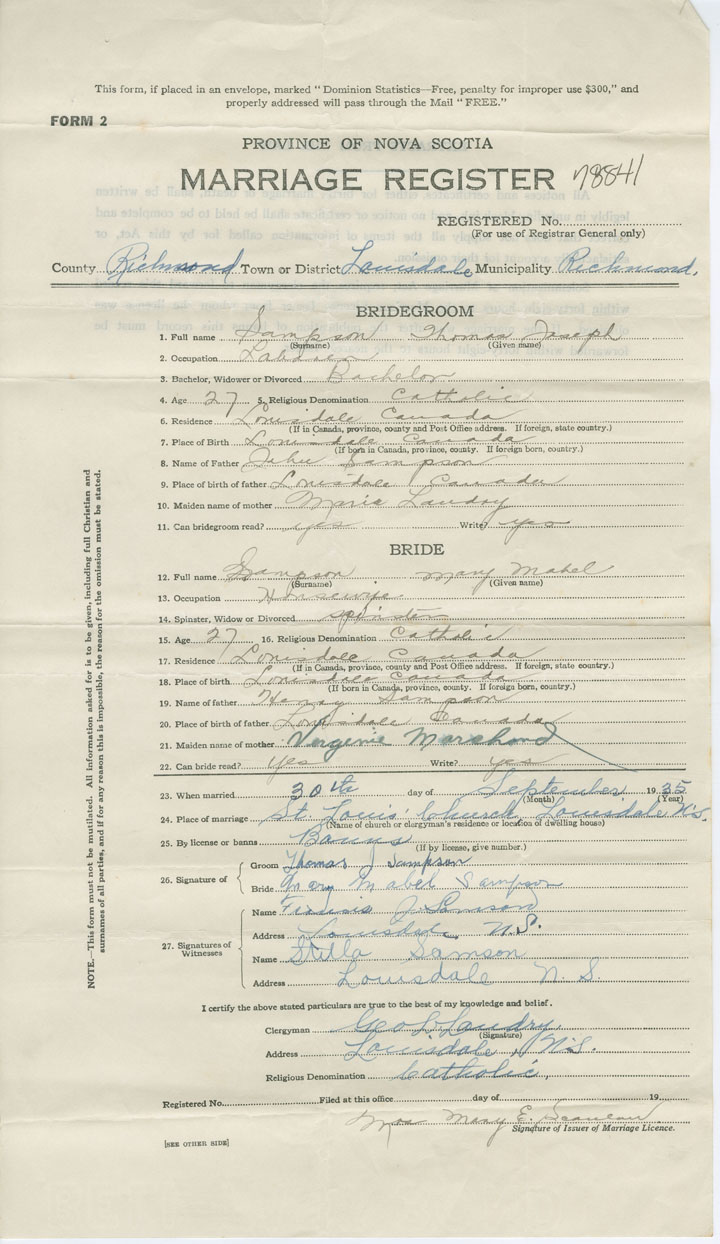 This form, if placed in an envelope, marked "Dominion Statistics—Free, penalty for improper use $300," and
properly addressed will pass through the Mail "FREE."
FORM 2
PROVINCE OF NOVA SCOTIA
MARRIAGE REGISTER 78841
REGISTERED No.
(For use of Registrar General only)
County Richmond Town or District Louisdale Municipality Richmond.
BRIDEGROOM
1. Full name Sampson Thomas Joseph
(Surname) (Given name)
2. Occupation
3. Bachelor, Widower or Divorced Bachelor
4. Age 27 5. Religious Denomination Catholic
6. Residence Louisdale Canada
(If in Canada, province, county and Post Office address. If foreign, state country.)
7. Place of Birth Louisdale Canada
(If born in Canada, province, county. If foreign born, country.)
8. Name of Father John Sampson
9. Place of birth of father Louisdale Canada
10. Maiden name of mother Maria Landry
11. Can bridegroom read? yes Write? yes
BRIDE
12. Full name Sampson Mary Mabel
(Surname) (Given name)
13. Occupation Housewife
14. Spinster, Widow or Divorced spinster
15. Age 27 16. Religious Denomination Catholic
17. Residence Louisdale Canada
(If in Canada, province, county and Post Office address. If foreign, state country.)
18. Place of birth Louisdale Canada
(If born in Canada, province, county. If foreign born, country.)
19. Name of father Henry Sampson
20. Place of birth of father Louisdale Canada
21. Maiden name of mother Vergenie Marchand
22. Can bride read? yes Write? yes
23. When married 30th day of September 1935
(Month) (Year)
24. Place of marriage St. Louis Church, Louisdale N.S.
(Name of church or clergyman's residence or location of dwelling house)
25. By license or banns Banns
(If by license, give number.)
26. Signature of
Groom Thomas J Sampson
Bride Mary Mabel Sampson
27. Signatures of Witnesses
Name J. Samson
Address Louisdale N.S.
Name Stella Samson
Address Louisdale N.S.
I certify the above stated particulars are true to the best of my knowledge and belief.
Clergyman Geo L Landry
(Signature)
Address Louisdale, N.S.
Religious Denomination Catholic
Registered No. Filed at this office day of 19
Mrs Mary E.
Signature of Issuer of Marriage Licence.
[SEE OTHER SIDE]
NOTE.—This form must not be mutilated. All information asked for is to be given, including full Christian and
surnames of all parties, and if for any reason this is impossible, the reason for the omission must be stated.